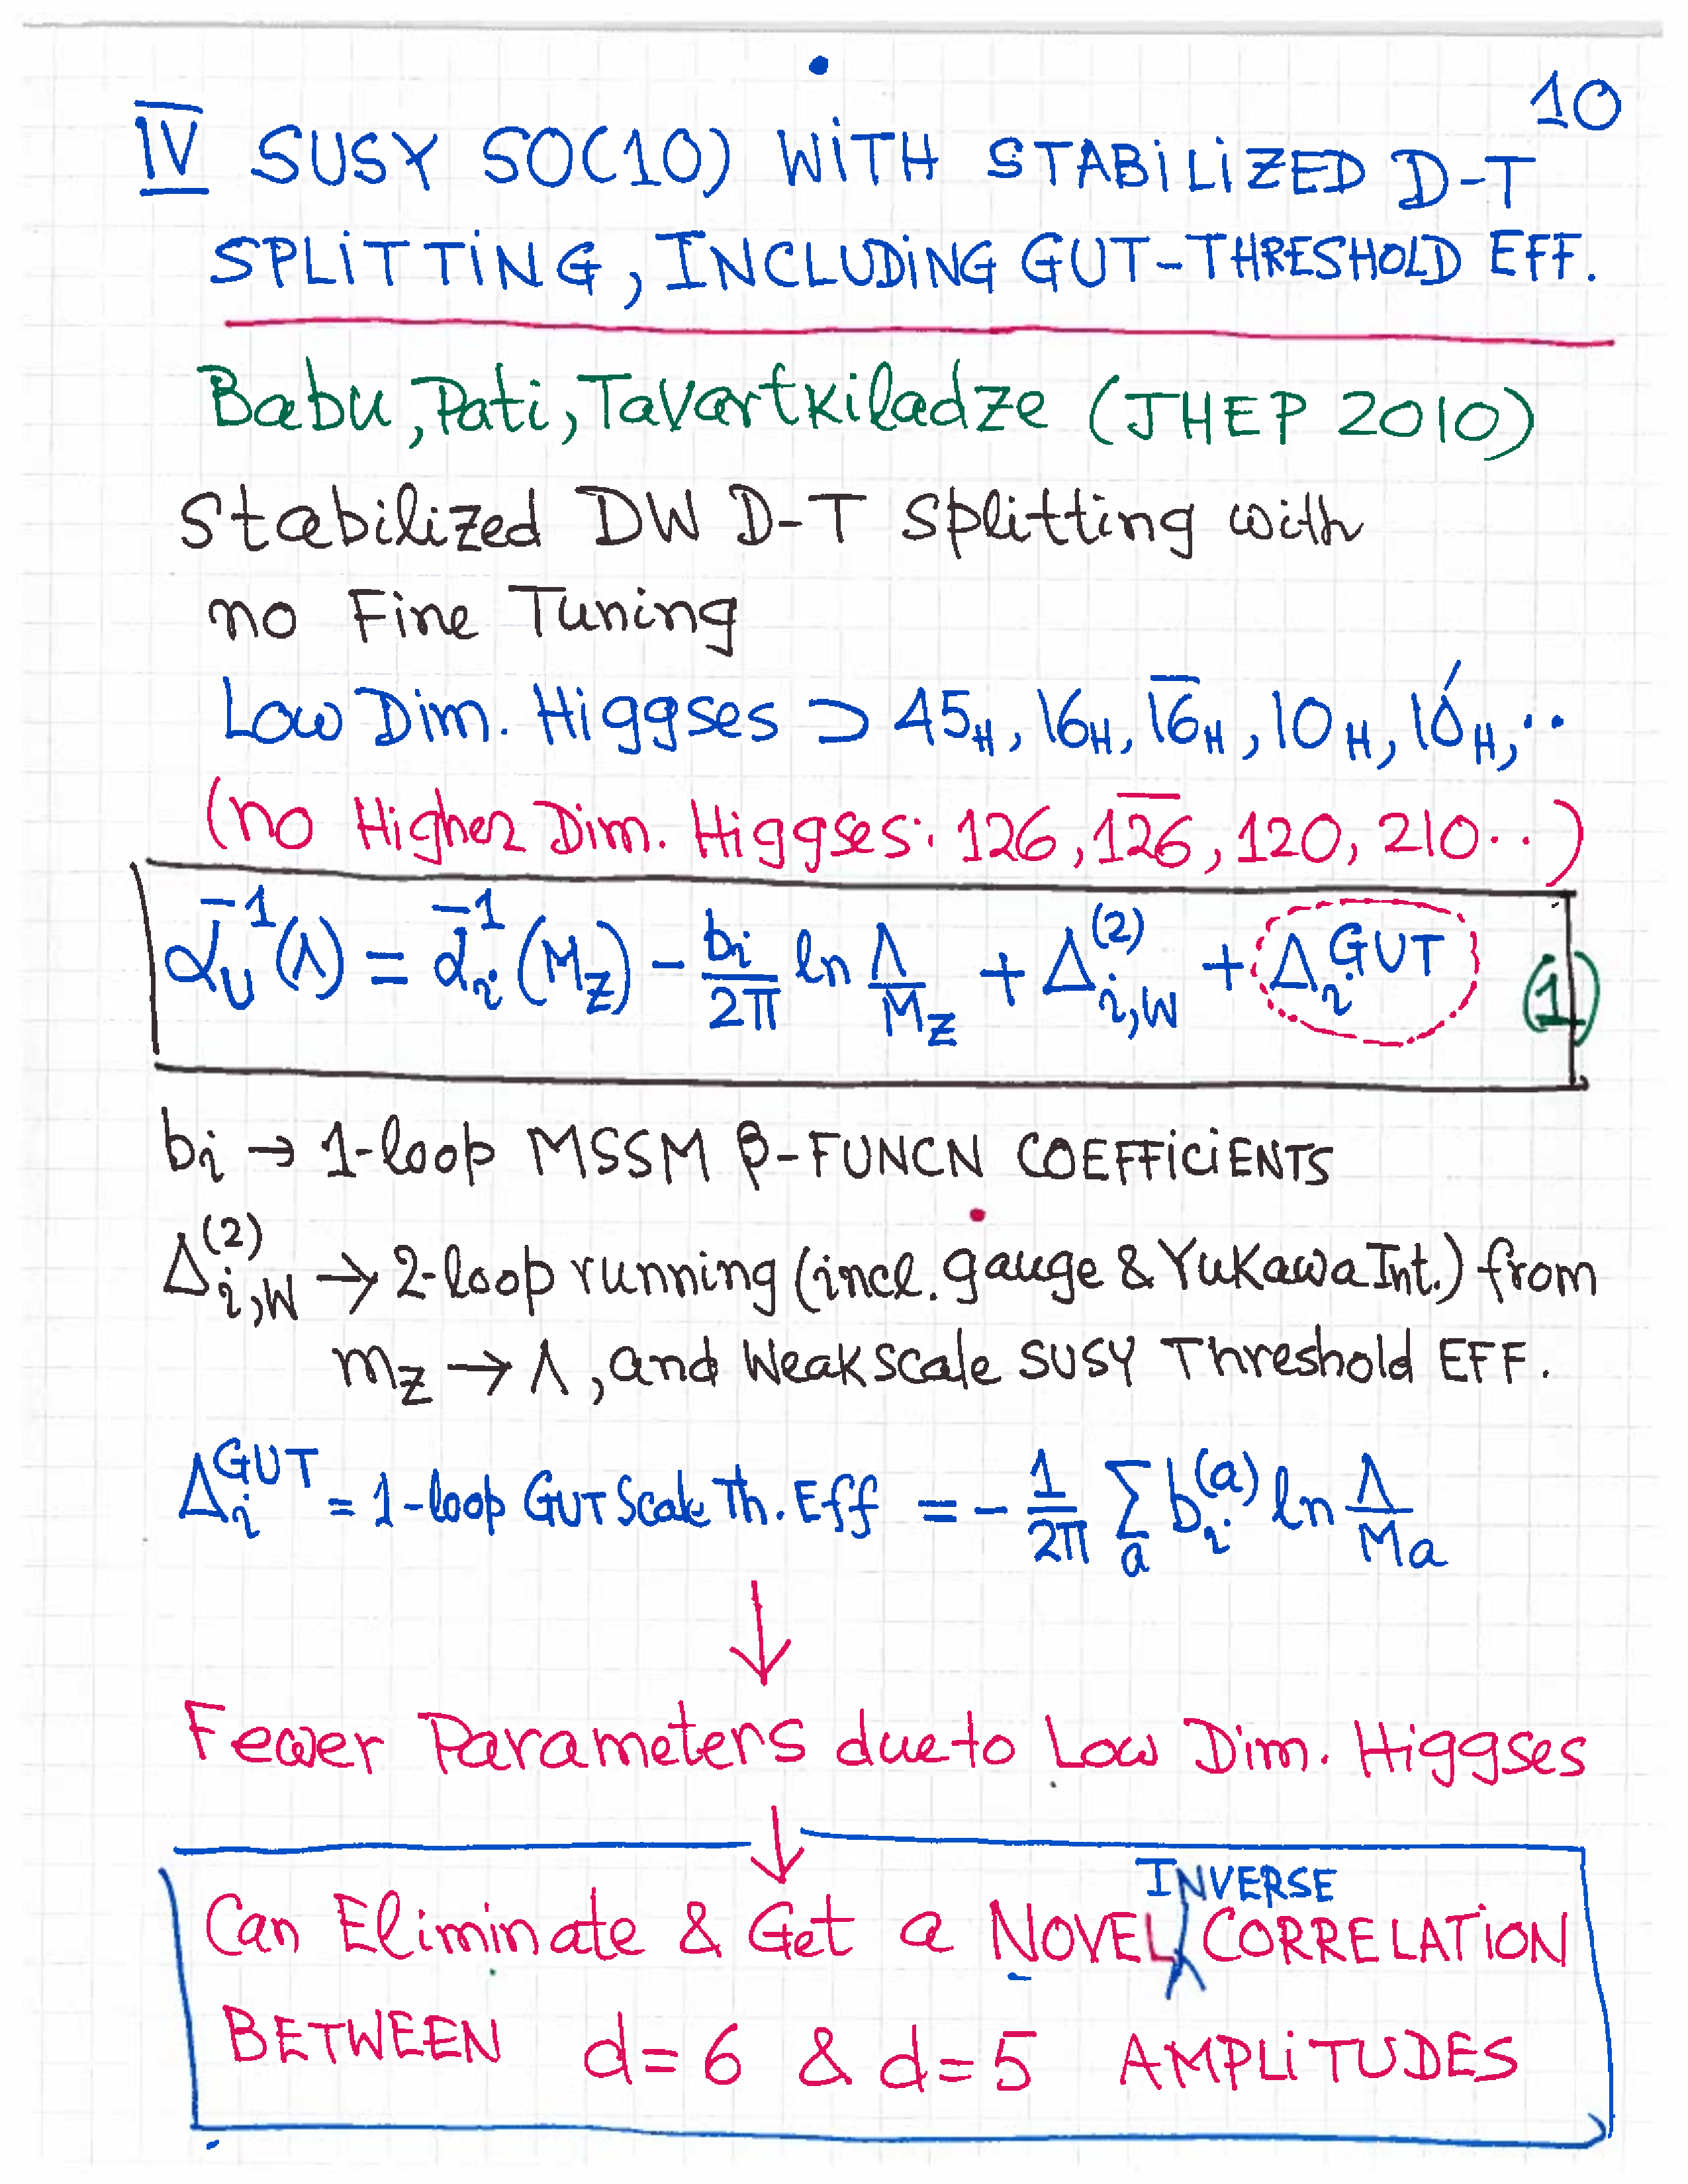 10
IV SUSY SO(10) WITH STABILIZED D-T
SPLITTING, INCLUDING GUT-THRESHOLD EFF.
Babu, Pati, Tavartkiladze (JHEP 2010)
Stabilized DW D-T Splitting with
no Fine Tuning
Low Dim. Higgses ⊃ 45_H, 16_H, \overline{16}_H, 10_H, 10′_H, ..
(no Higher Dim. Higgses: 126, \overline{126}, 120, 210..)
α_U^{-1}(Λ) = α_i^{-1}(M_Z) - \frac{b_i}{2π} ln \frac{Λ}{M_Z} + Δ_{i,W}^{(2)} + Δ_i^{GUT} (1)
b_i → 1-loop MSSM β-FUNCN COEFFICIENTS
Δ_{i,W}^{(2)} → 2-loop running (incl. gauge & Yukawa Int.) from
m_Z → Λ, and Weak scale SUSY Threshold EFF.
Δ_i^{GUT} = 1-loop GUT Scale Th. Eff = -\frac{1}{2π} Σ_a b_i^{(a)} ln \frac{Λ}{M_a}
↓
Fewer Parameters due to Low Dim. Higgses
↓
Can Eliminate & Get a NOVEL INVERSE CORRELATION
BETWEEN d=6 & d=5 AMPLITUDES